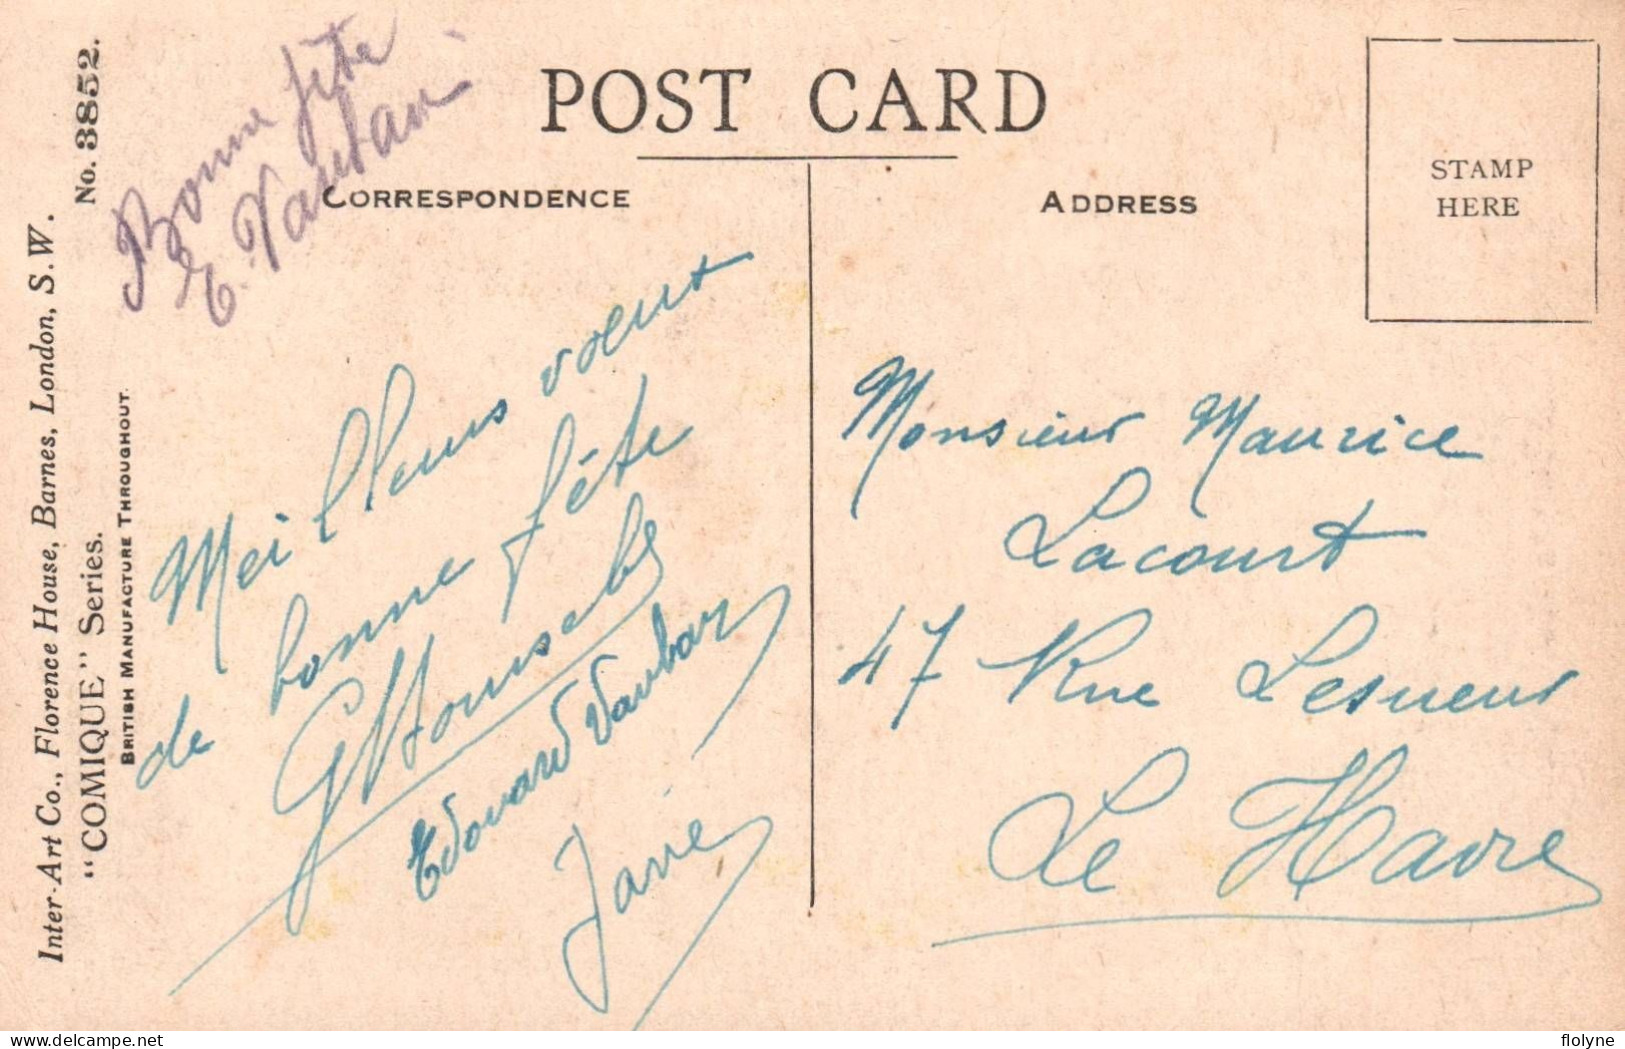 POST CARD
CORRESPONDENCE
ADDRESS
STAMP
HERE
No. 3852.
Inter-Art Co., Florence House, Barnes, London, S.W.
"COMIQUE" Series.
BRITISH MANUFACTURE THROUGHOUT.
Bonne fête
E. Vauban
Meilleurs voeux
de bonne fête
Edouard Vauban
Monsieur Maurice
Lacourt
47 Rue Lesueur
Le Havre
delcampe.net
flolyne